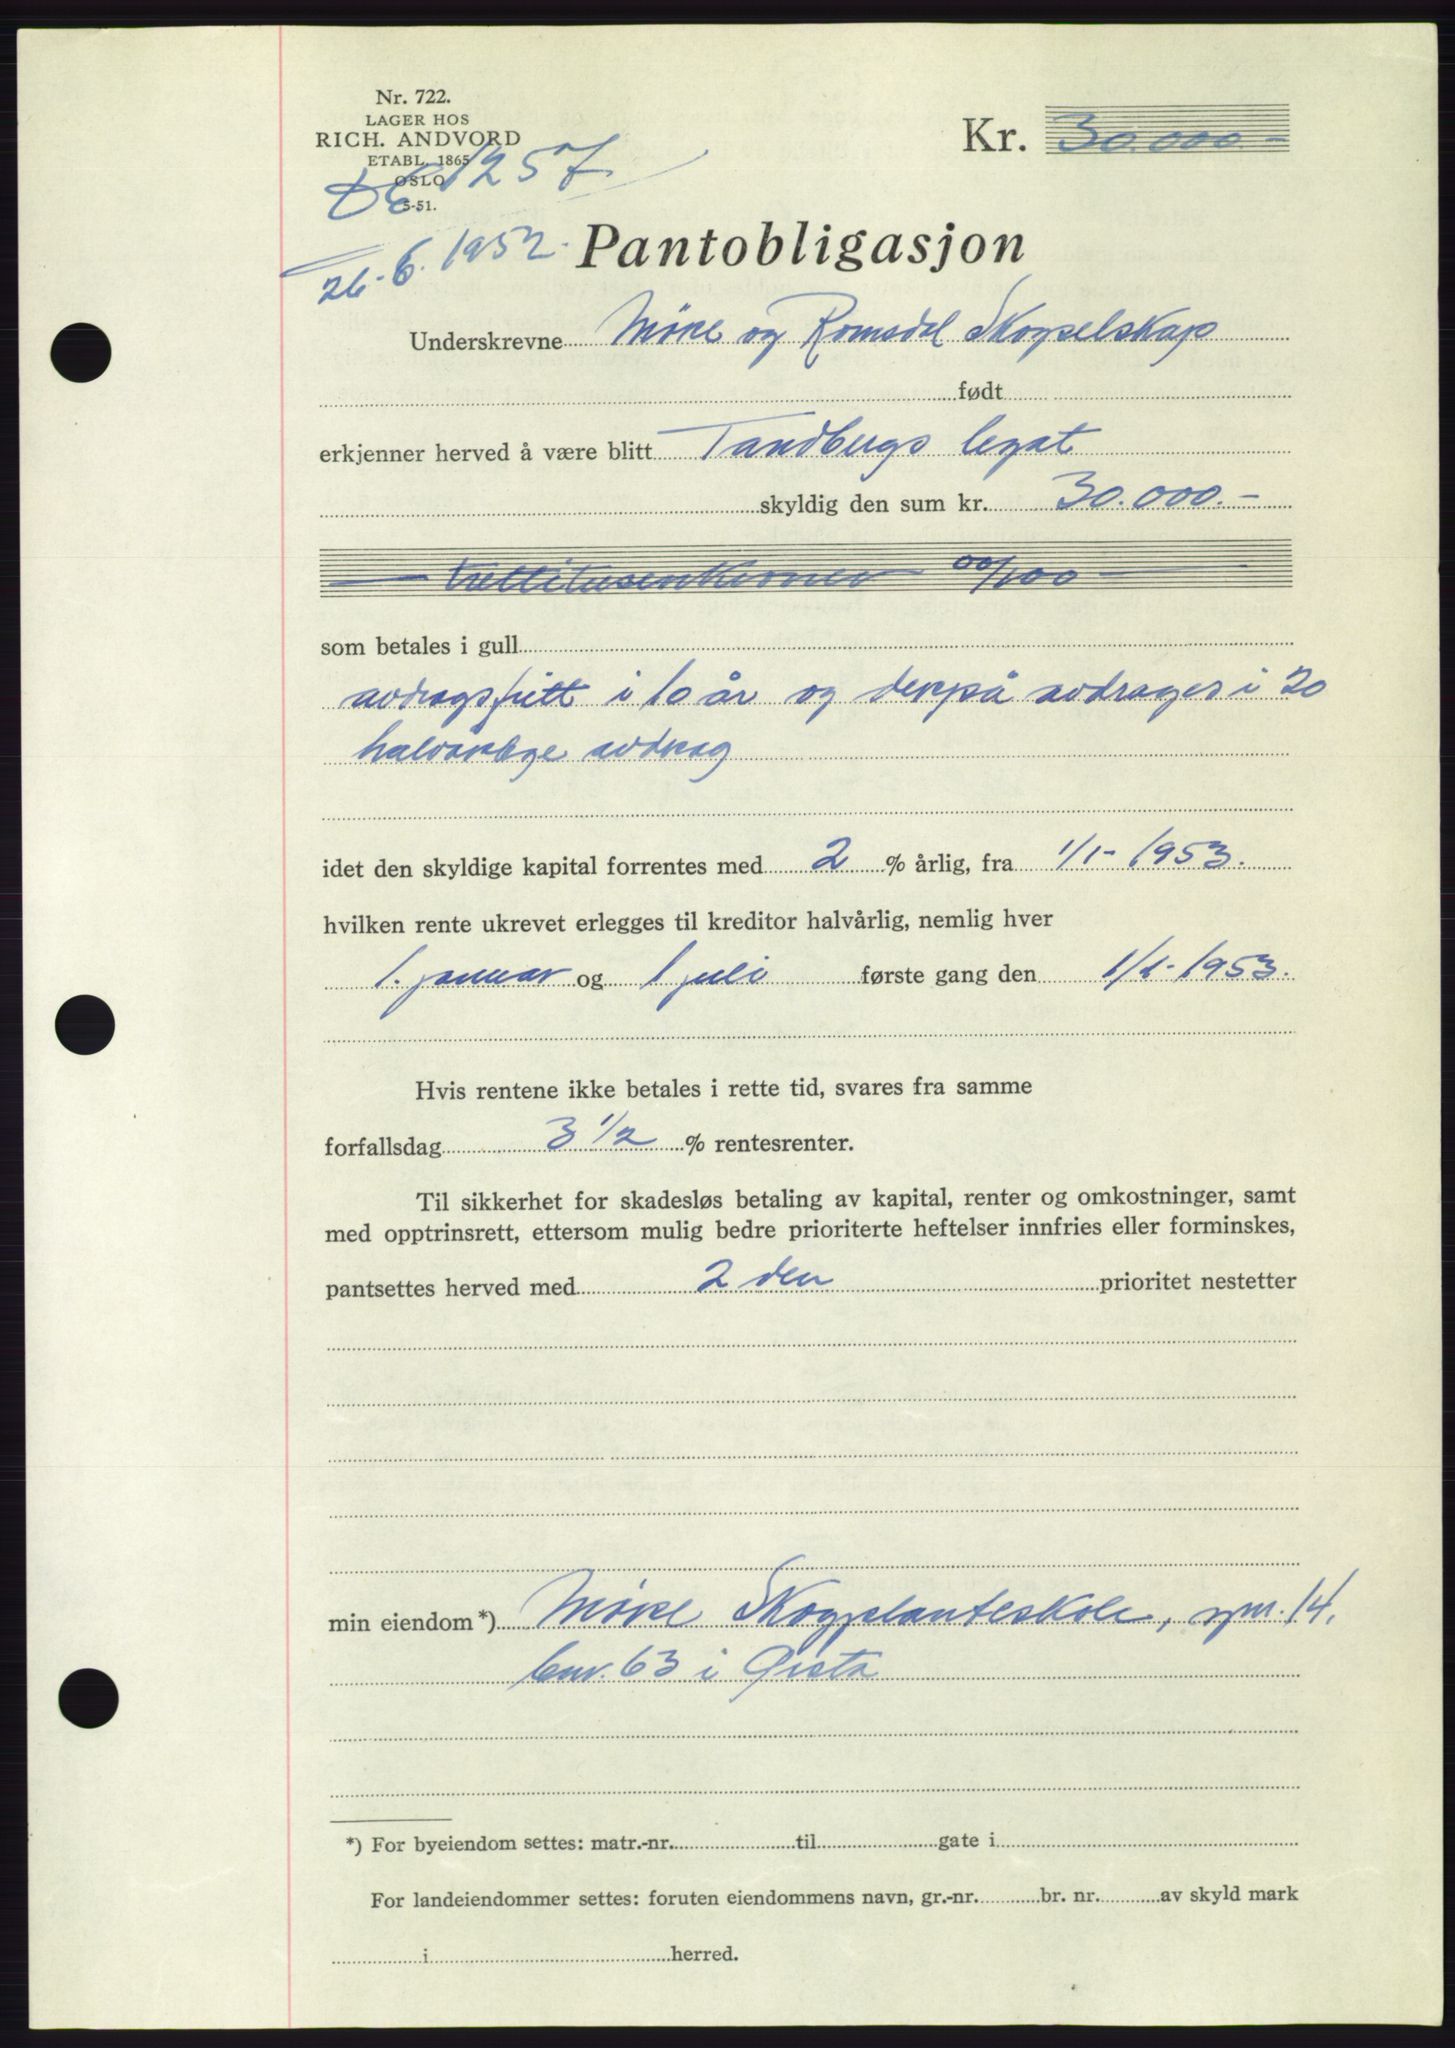 Nr. 722.
LAGER HOS
RICH. ANDVORD
ETABL. 1865
OSLO
5-51.
1257
26.-6. 1952.
Kr. 30.000.-
Pantobligasjon
Underskrevne Møre og Romsdal Skogselskap
født
erkjenner herved å være blitt Tandbergs legat
skyldig den sum kr. 30.000.-
trettitusenkroner 00/100
som betales i gull
avdragsfritt i 10 år og derpå avdrages i 20
halvårlige avdrag
idet den skyldige kapital forrentes med 2 % årlig, fra 1/1- 1953.
hvilken rente ukrevet erlegges til kreditor halvårlig, nemlig hver
1. januar og 1 juli første gang den 1/1- 1953.
Hvis rentene ikke betales i rette tid, svares fra samme
forfallsdag 3 1/2 % rentesrenter.
Til sikkerhet for skadesløs betaling av kapital, renter og omkostninger, samt
med opptrinsrett, ettersom mulig bedre prioriterte heftelser innfries eller forminskes,
pantsettes herved med 2 den prioritet nestetter
min eiendom *) Møre Skogplanteskole, gnr. 14,
bnr. 63 i Ørsta
*) For byeiendom settes: matr.-nr. til gate i
For landeiendommer settes: foruten eiendommens navn, gr.-nr. br. nr. av skyld mark
i herred.